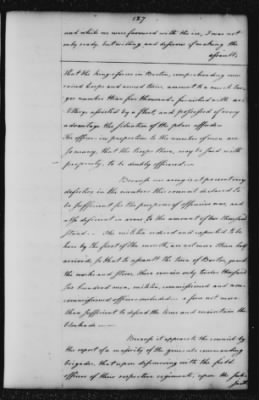 187
and while we were favored with the ice, I was not
only ready, but willing and desirous of making the
assault;
that the Kings forces in Boston, comprehending new
raised corps and armed tories, amount to a much lar=
ger number than five thousand, furnished with ar=
tillery, assisted by a fleet and possessed of every
advantage the situation of the place affords
The officers in proportion to the number of men are
so many, that the troops there, may be said with
propriety, to be doubly officered.—
Because our army is at present very
defective in the numbers this council declared to
be sufficient for the purpose of offensive war, and
also deficient in arms to the amount of two thousand
stand.— The militia ordered and expected to be
here by the first of the month, are not more than half
arrived, so that to assault the town of Boston, guard
the works and stores, there remain only twelve thousand
five hundred men, militia, commissioned and non=
commissioned officers included— a force not more
than sufficient to defend the lines and maintain the
blockade.—
Because it appears to the council by
the report of a majority of the generals commanding
brigades, that upon discoursing with the field
officers of their respective regiments, upon the sub=